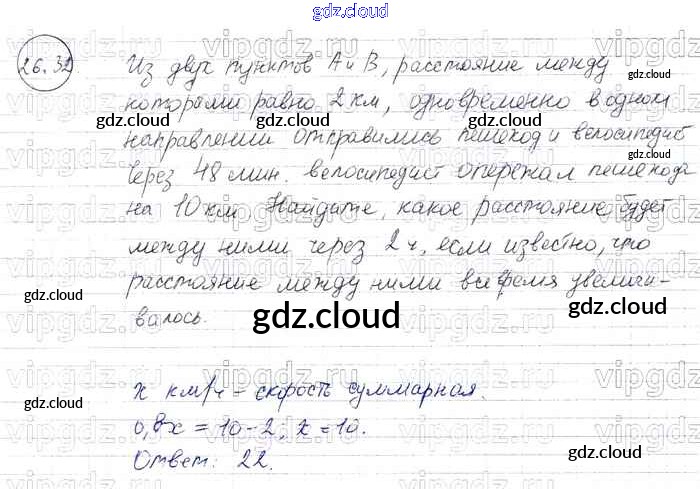 gdz.cloud
26.32
Из двух пунктов А и В, расстояние между
которыми равно 2 км, одновременно в одном
направлении отправились пешеход и велосипедист
Через 48 мин. велосипедист опережал пешехода
на 10 км. Найдите, какое расстояние будет
между ними через 2 ч, если известно, что
расстояние между ними все время увеличи-
валось.
gdz.cloud
x км/ч - скорость суммарная.
0,8x = 10-2; x = 10.
Ответ: 22.